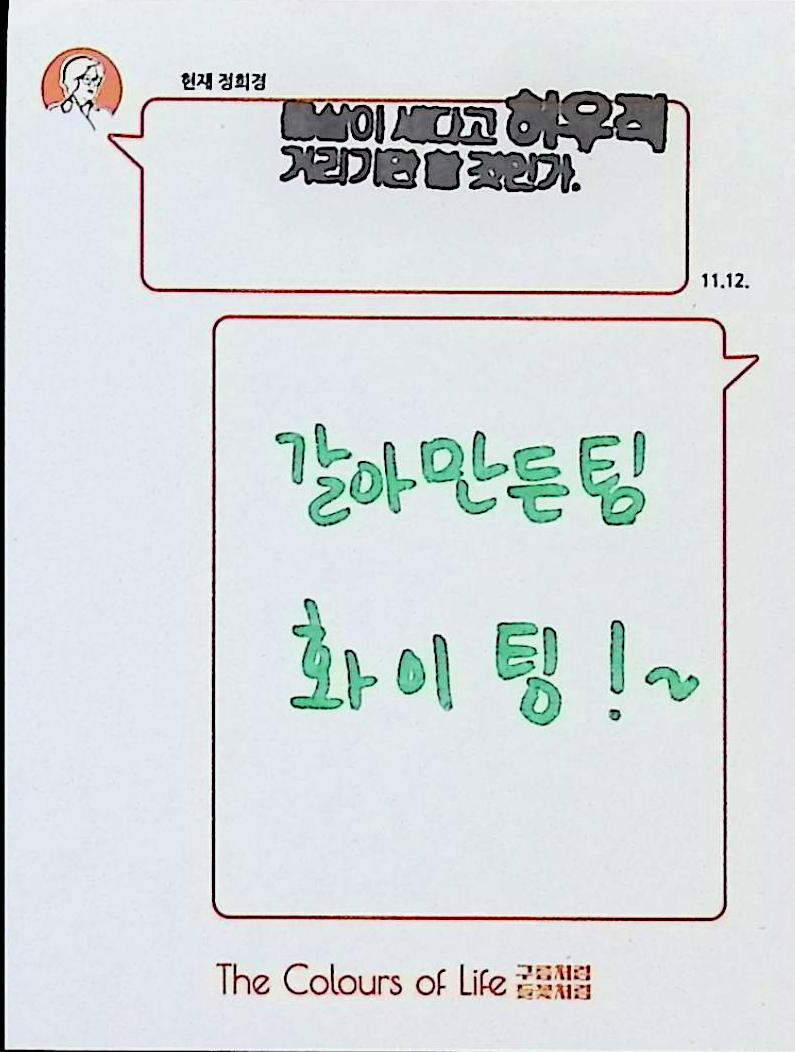 현재 정희경
물살이 세다고 허우적
거리기만 할 것인가.
11.12.
갈아만든팀
화이팅!~
The Colours of Life 구름처럼
들꽃처럼